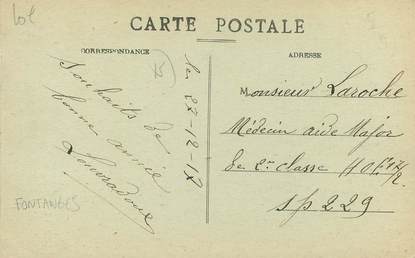 Lot
CARTE POSTALE
CORRESPONDANCE
ADRESSE
le 27-12-17
Souhaits de
bonne année
Monsieur Laroche
Médecin aide Major
de 2e classe
sp 229
FONTANGES